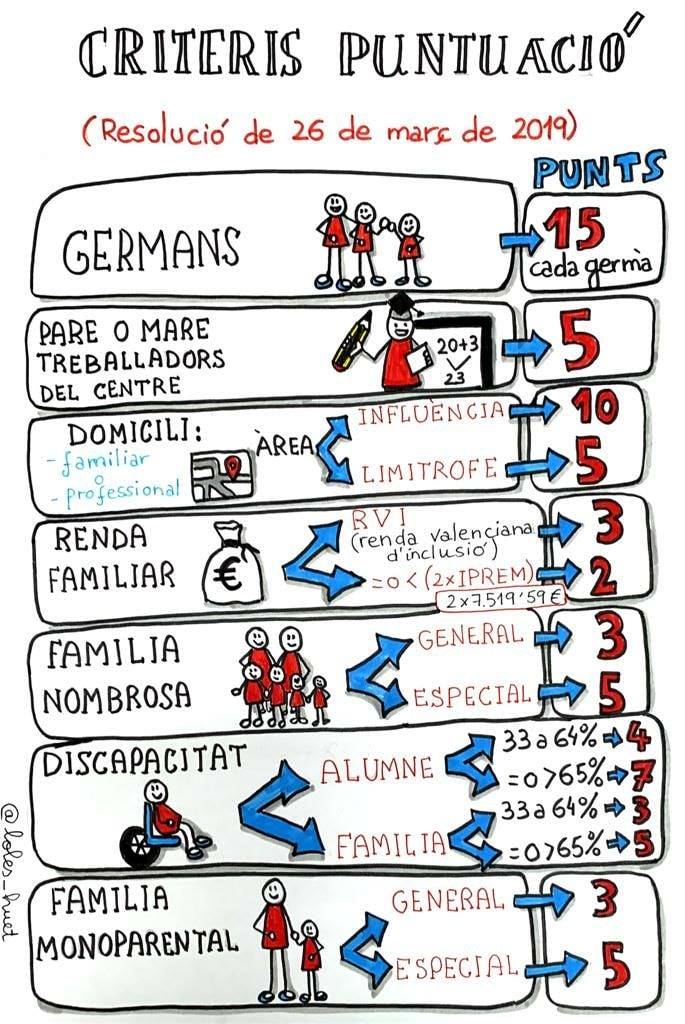 CRITERIS PUNTUACIÓ
(Resolució de 26 de març de 2019)
PUNTS
GERMANS
15
cada germà
PARE O MARE
TREBALLADORS
DEL CENTRE
20+3
23
5
DOMICILI:
- familiar
o
- professional
ÀREA
INFLUÈNCIA
10
LIMITROFE
5
RENDA
FAMILIAR
€
RVI
(renda valenciana
d'inclusió)
3
=o<(2xIPREM)
2
2x7.519'59€
FAMILIA
NOMBROSA
GENERAL
3
ESPECIAL
5
DISCAPACITAT
ALUMNE
33 a 64% 4
=o>65% 7
FAMILIA
33 a 64% 3
=o>65% 5
FAMILIA
MONOPARENTAL
GENERAL
3
ESPECIAL
5
@loles_huet